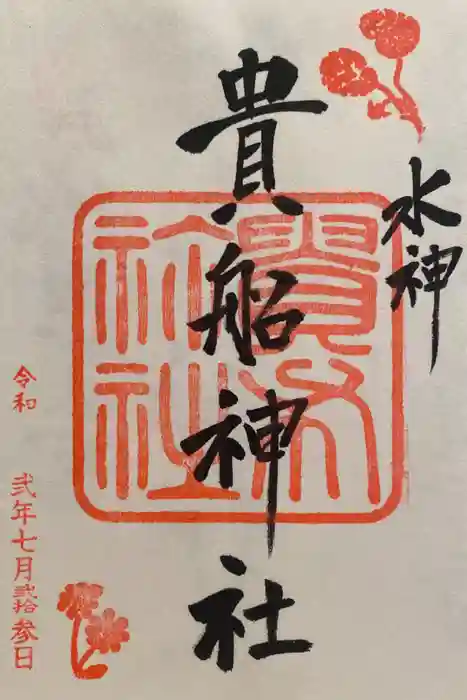 水神
貴船神社
令和 弐年七月弐拾参日